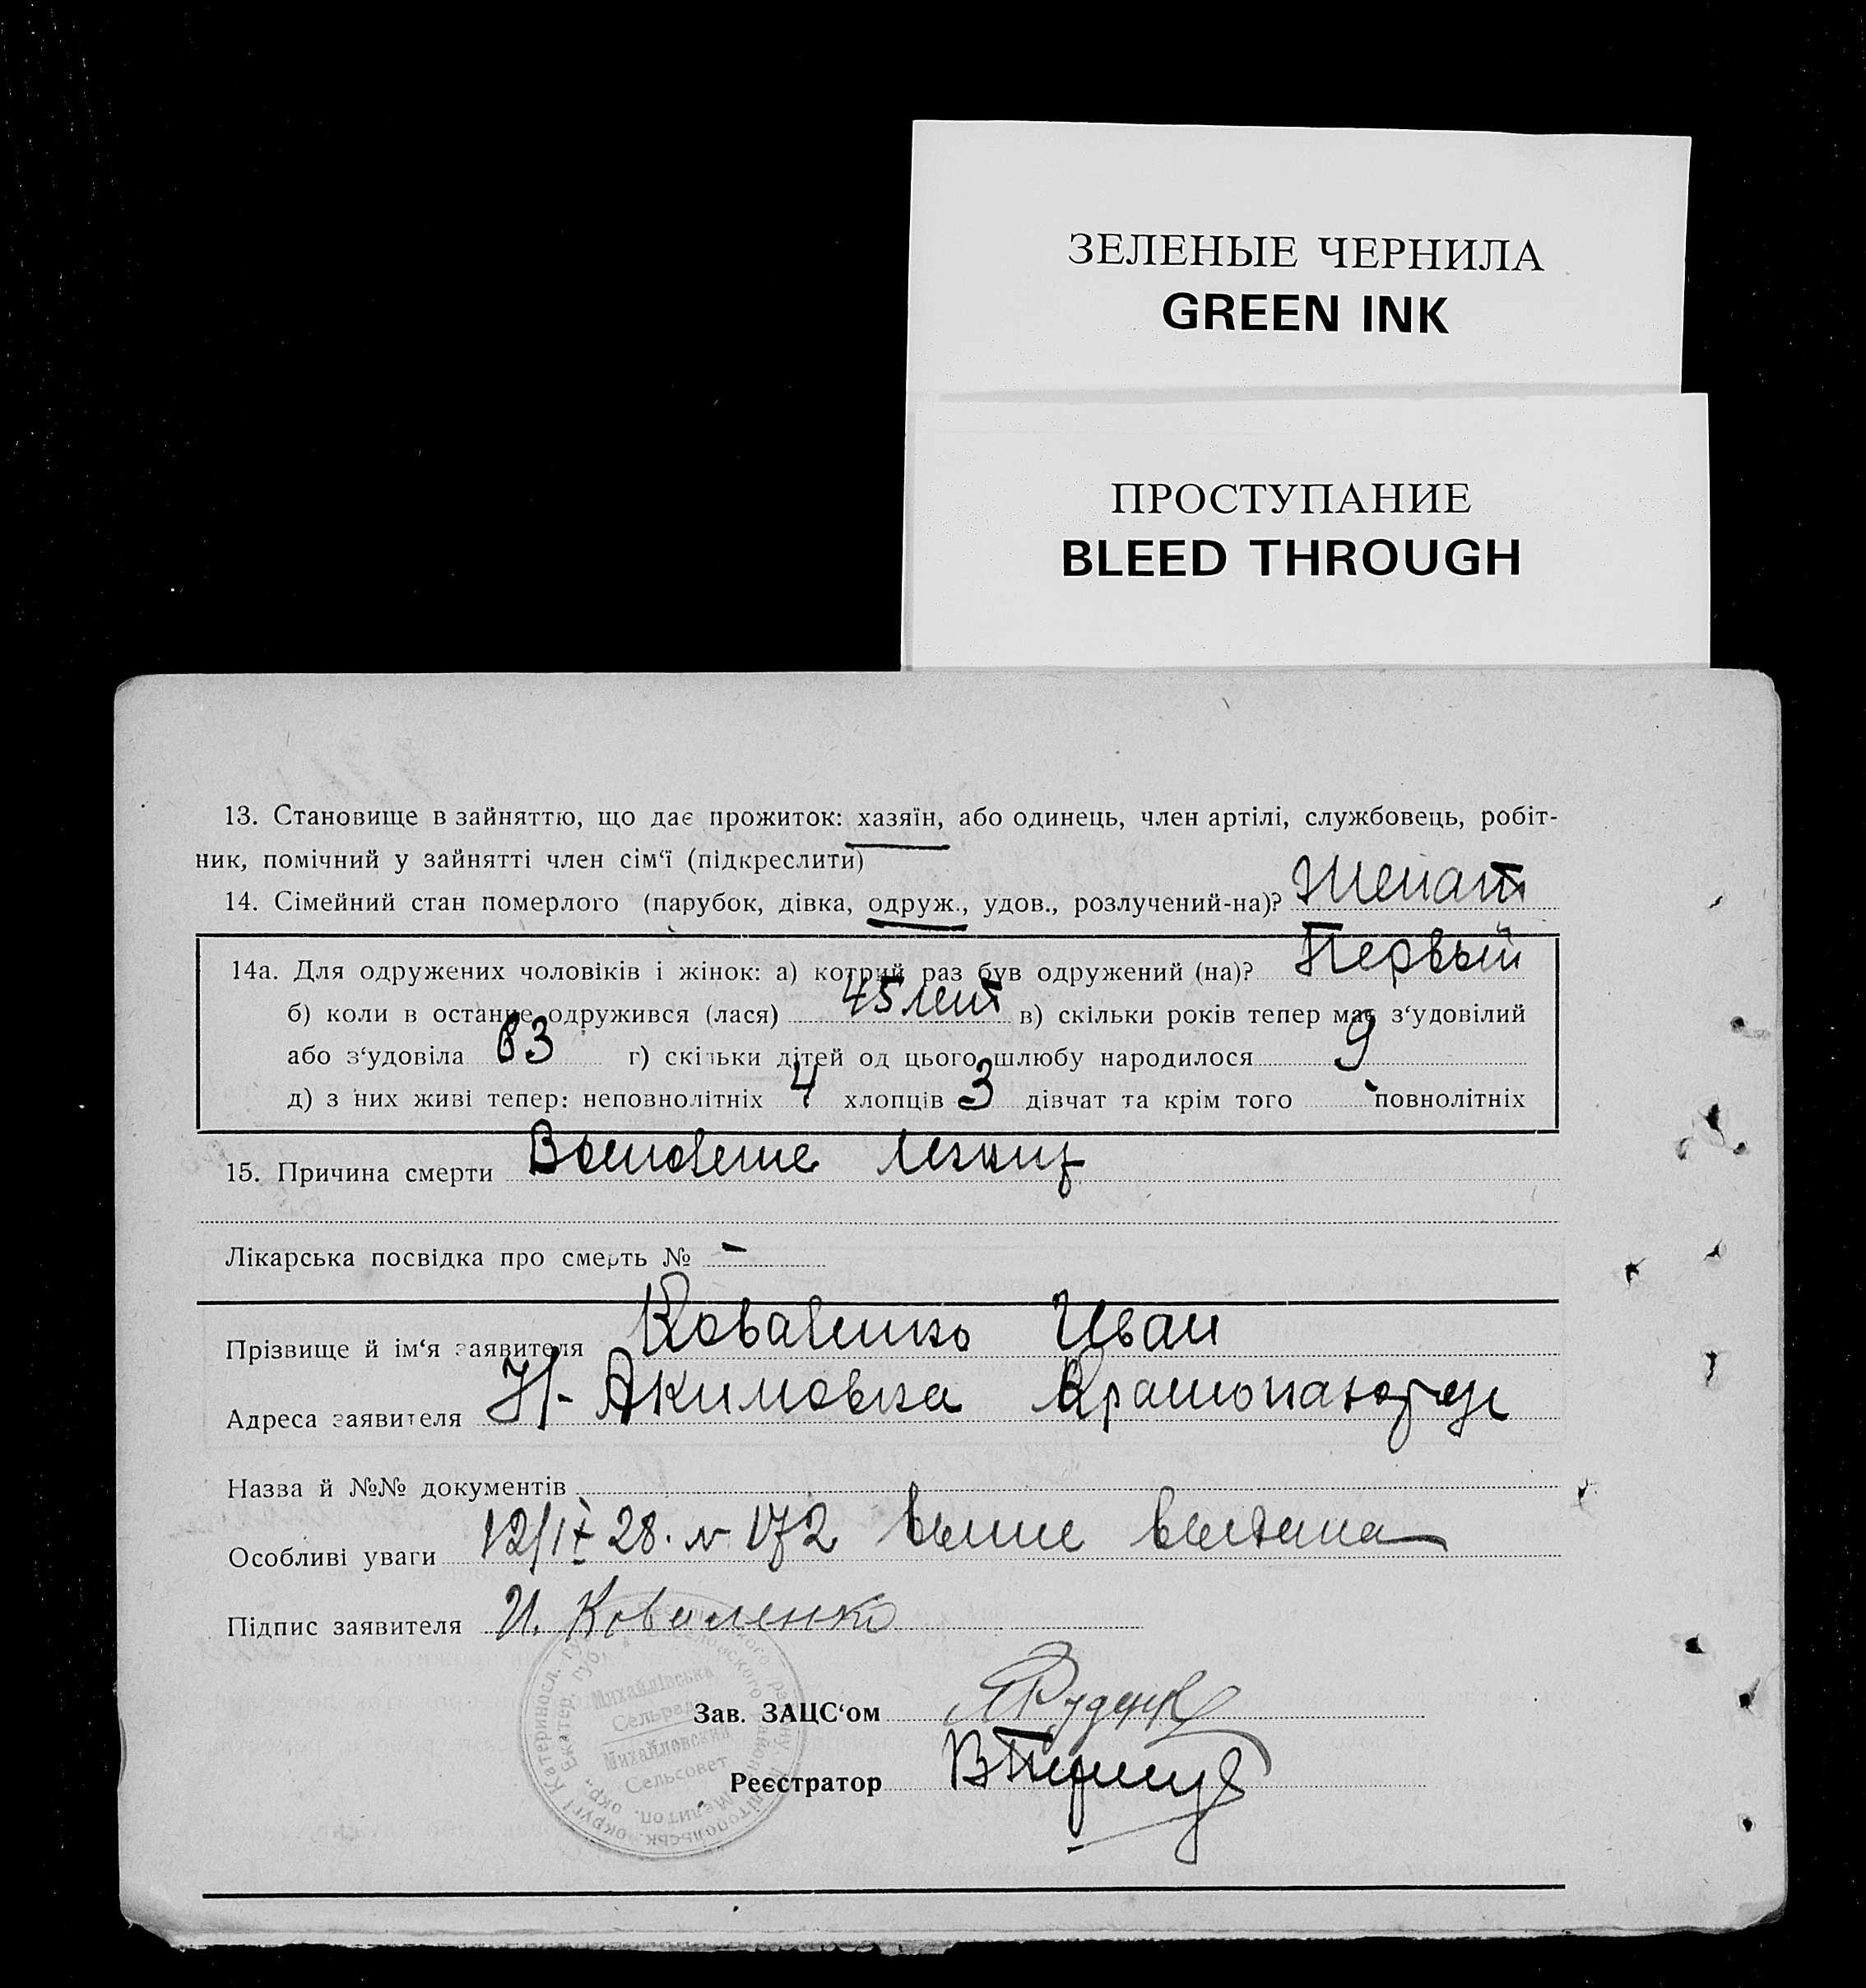 ЗЕЛЕНЫЕ ЧЕРНИЛА
GREEN INK
ПРОСТУПАНИЕ
BLEED THROUGH
13. Становище в зайняттю, що дає прожиток: хазяїн, або одинець, член артілі, службовець, робіт-
ник, помічний у зайнятті член сім‘ї (підкреслити)
14. Сімейний стан померлого (парубок, дівка, одруж., удов., розлучений-на)? Женат
14а. Для одружених чоловіків і жінок: а) котрий раз був одружений (на)? Первый
б) коли в останнє одружився (лася) 45 лет в) скільки років тепер має з‘удовілий
або з‘удовіла 63 г) скільки дітей од цього шлюбу народилося 9
д) з них живі тепер: неповнолітніх 4 хлопців 3 дівчат та крім того повнолітніх
15. Причина смерти
Лікарська посвідка про смерть № –
Прізвище й ім‘я заявителя Коваленко Иван
Адреса заявителя Н-Акимовка
Назва й №№ документів
Особливі уваги 12/IX 28. N 172
Підпис заявителя И. Коваленко
Михайлівська
Сельрада
Михайловский
Сельсовет
Зав. ЗАЦС‘ом
Реєстратор